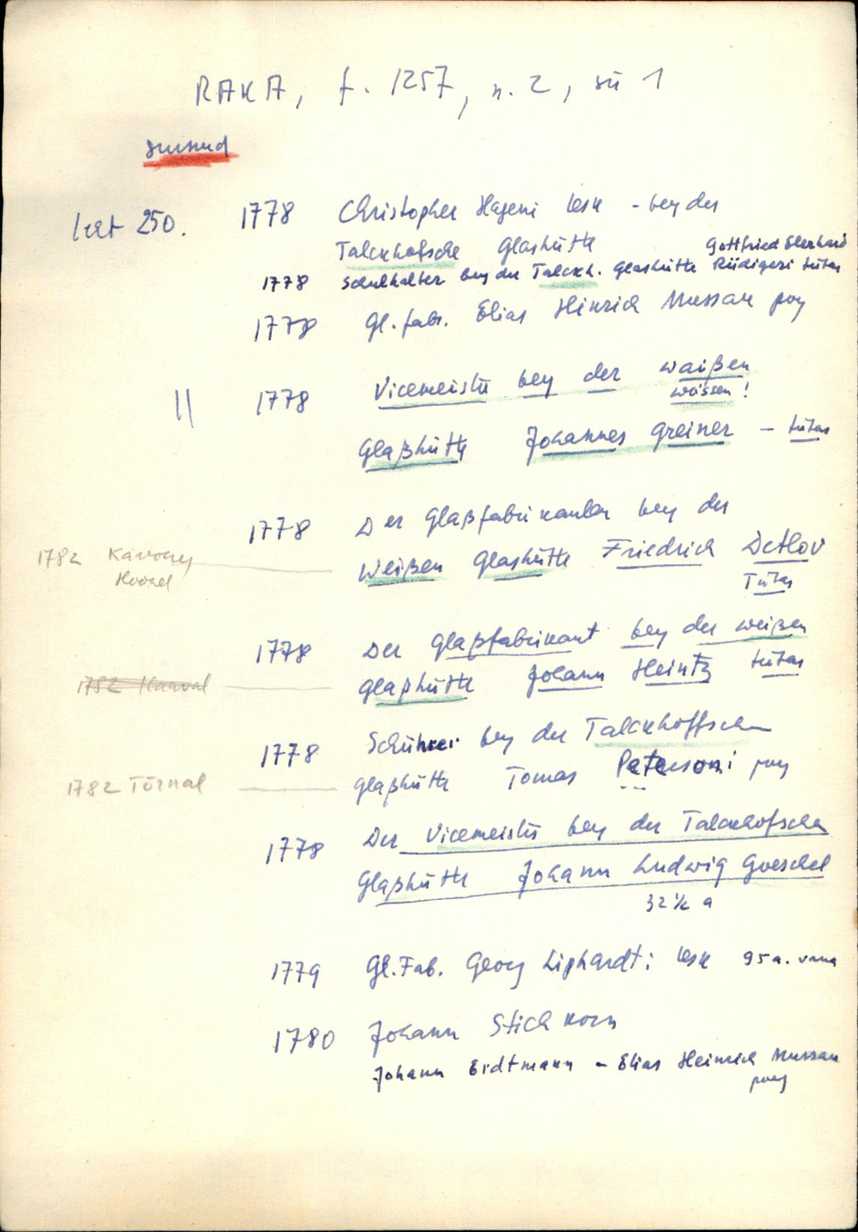 RAKA, f. 1257, n. 2, sü 1
surnud
lat 250. 1778 Christopher Hageni lesk - bey der
Talckhofsche Glashütte Gottfried Eberhard
1778 Schulhalter bey der Talckh. Glashütte Rüdigeri tütar
1778 Gl. fabr. Elias Hinrich Mussau poeg
|| 1778 Vicemeister bey der waißen
wässen!
Glaßhütte Johannes Greiner - tütar
1778 Der Glaßfabrikanten bey der
1782 Karvony
Weißen Glashütte Friedrich Detlov
tütar
1778 Der Glaßfabrikant bey der weißen
1782 Kaaval Glaßhütte Johann Heintz tütar
1778 Schührer bey der Talckhoffschen
1782 Törnal Glaßhütte Tomas Petersoni poeg
1778 Der Vicemeister bey der Talckhofschen
Glaßhütte Johann Ludwig Goeschel
32 ½ a
1779 Gl. Fab. Georg Liphardti lesk 95 a. vana
1780 Johann Stichkorn
Johann Erdtmann - Elias Heinrich Mussau
poeg